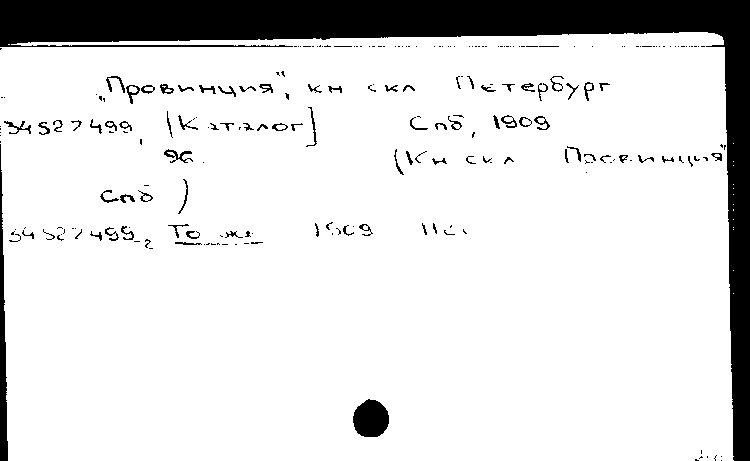 „Провинция", кн скл Петербург
34527499, [Каталог] Спб, 1909
9с. (Кн скл Провинция"
Спб)
34527499-2 То же 1909